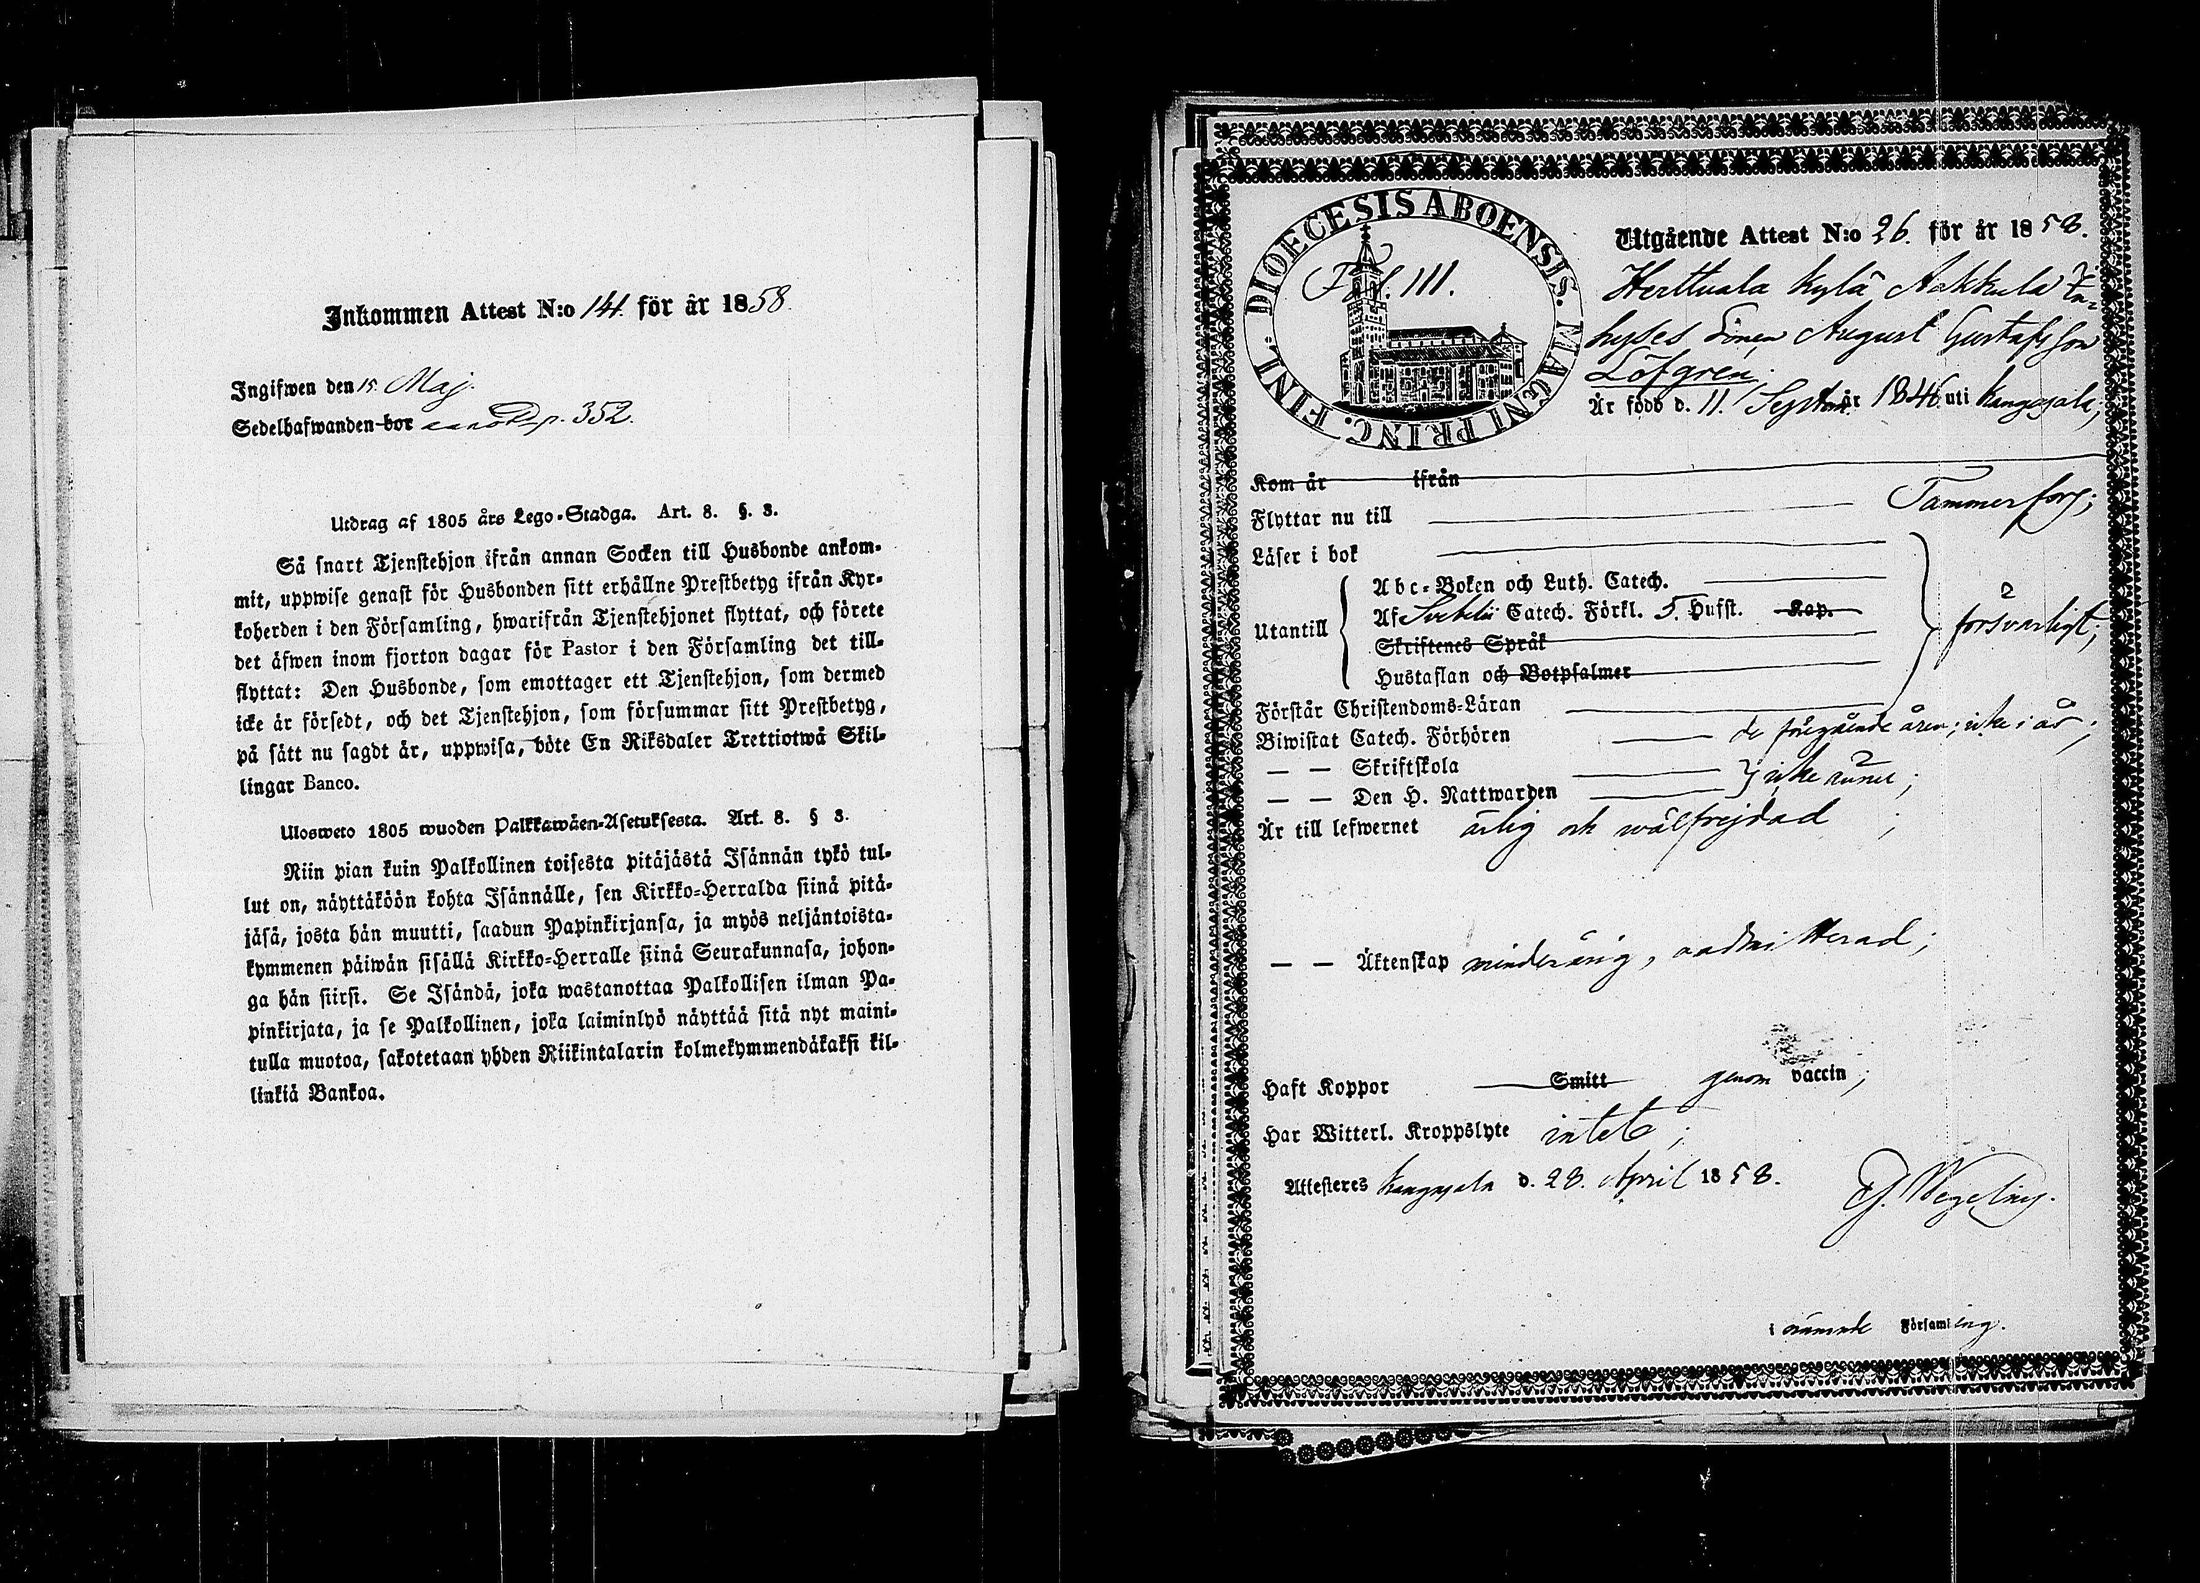 Inkommen Attest N:o 144. för år 1858.
Ingifwen den 15. Maj.
Sedelhafwanden bor p. 352.
Utdrag af 1805 års Lego-Stadga. Art. 8. §. 3.
Så snart Tjenstehjon ifrån annan Socken till Husbonde ankom-
mit, uppwise genast för Husbonden sitt erhållne Prestbetyg ifrån Kyr-
koherden i den Församling, hwarifrån Tjenstehjonet flyttat, och förete
det äfwen inom fjorton dagar för Pastor i den Församling det till-
flyttat: Den Husbonde, som emottager ett Tjenstehjon, som dermed
icke är försedt, och det Tjenstehjon, som försummar sitt Prestbetyg,
på sätt nu sagdt är, uppwisa, böte En Riksdaler Trettiotwå Skil-
lingar Banco.
Ulosweto 1805 wuoden Palkkawäen-Asetuksesta. Art. 8. § 3.
Niin pian kuin Palkollinen toisesta pitäjästä Isännän tykö tul-
lut on, näyttäköön kohta Isännälle, sen Kirkko-Herralda siinä pitä-
jäsä, josta hän muutti, saadun Papinkirjansa, ja myös neljäntoista-
kymmenen päiwän sisällä Kirkko-Herralle siinä Seurakunnasa, johon-
ga hän siirsi. Se Isändä, joka wastanottaa Palkollisen ilman Pa-
pinkirjata, ja se Palkollinen, joka laiminlyö näyttää sitä nyt maini-
tulla muotoa, sakotetaan yhden Riikintalarin kolmekymmendäkaksi kil-
linkiä Bankoa.
DIOECESIS ABOENSIS. MAGNI PRINC. FINL.
Fol. 111.
Utgående Attest N:o 26. för år 1858.
Herttuala kylä Aakkula In-
hyses Sonen August Gustafsson
Löfgren;
Är född d. 11. Septem. år 1846 uti Kangasala;
Kom år ifrån
Flyttar nu till Tammerfors;
Läser i bok
Utantill
Abc-Boken och Luth. Catech.
Af Svebelii Catech. Förkl. 5. Hufst. Kap.
Skriftenes Språk
Hustaflan och Botpsalmer
försvarligt;
Förstår Christendoms-Läran
Biwistat Catech. Förhören de föregående åren; icke i år;
— — Skriftskola
— — Den H. Nattwarden } icke ännu;
Är till lefwernet ärlig och wälfrejdad;
— — Äktenskap minderårig, oadmitterad;
Haft Koppor Smitt genom vaccin;
Har Witterl. Kroppslyte intet;
Attesteres Kangasala d. 28. April 1858.
Wegelius.
i nämnde Församling.